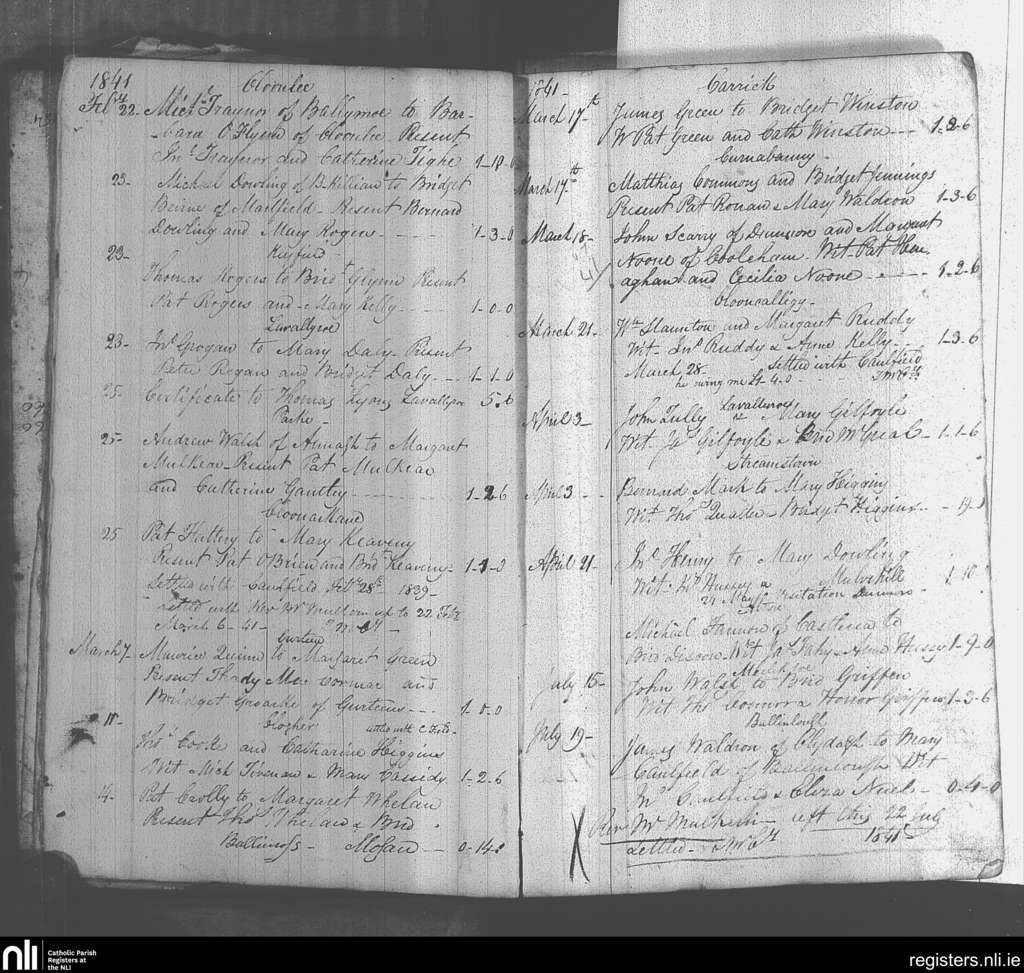 1841 Cloonlee
Feb 22 - Mich.l Traynor of Ballymoe to Bar-
bara O'Flynn of Cloonlee Present
Jn.o Traynor and Catherine Tighe 1-10-0
23- Michael Dowling of B.Killian to Bridget
Beirne of Marlfield - Present Bernard
Dowling and Mary Rogers - 1-3-0
23-
Thomas Rogers to Brid.t Glynn Present
Pat Rogers and Mary Kelly - 1-0-0
Lavallyroe
23- Jn.o Grogan to Mary Daly - Present
Peter Regan and Bridget Daly - 1-1-0
25- Certificate to Thomas Lyons Lavallyroe 5-0
Parke -
25- Andrew Walsh of Armagh to Margaret
Mulkeen - Present Pat Mulkeen
and Catherine Gantley - 1-2-6
25 Pat Flattery to Mary Keaveny
Present Pat O'Brien and Brid.t Keaveny - 1-1-0
Settled with Caulfield Feb 28th 1839 -
settled with Rev Mr up to 22 Feb
March 6 - 41 -
Gurteen
March 7 - Maurice Quinn to Margaret Green
Present Thady Mac Cormac and
Bridget Groarke of Gurteens - 1-0-0
Clogher
11- Tho.s Cooke and Catharine Higgins
Wit Mich Tiernan & Mary Cassidy 1-2-6
14- Pat Crolly to Margaret Whelan
Present Tho.s Whelan & Brid
Moran - 0-14-
1841 - Carrick
March 17th James Green to Bridget Winston
W Pat Green and Cath Winston - 1-2-6
Curnabanny -
March 17th Matthias Commons and Bridget Jennings
Present Pat Ronan & Mary Waldron 1-3-6
March 18 - John Scarry of Dunmore and Margaret
Noone of Cooleham - Wit Pat Hen
aghan and Cecilia Noone - 1-2-6
Clooncalligy -
March 21 - W.m Staunton and Margaret Ruddy
Wit - Jn.o Ruddy & Anne Kelly - 1-3-6
March 28 - settled with Caulfield
he owing me £1-4-0
Lavalleroe
April 3 - John Tully to Mary Gilfoyle
Wit Ja.s Gilfoyle & Brid McGreal - 1-1-6
Streamstown
April 3 - Bernard Mark to Mary Higgins
Wit Tho.s Qualter - Bridget Higgins - 19-
April 21 - Jn.o Henry to Mary Dowling
Wit - Hussey & Mulvihill 1-10
24 May Visitation Dunmore -
Michael Fannon of Castlerea to
Brid - Wit Ja.s Fahy & Anne Hussey 1-9-0
July 15 - John Walsh to Brid Griffen
Wit Tho.s Connor & Honor Griffen 1-3-6
Ballinlough
July 19 - James Waldron of Clydagh to Mary
Caulfield of Ballinlough Wit
Jn.o Caulfield & Eliza Neal - 0-4-0
Rev Mr - left this 22 July
settled - 1841
nli
Catholic Parish
Registers at
the NLI
registers.nli.ie